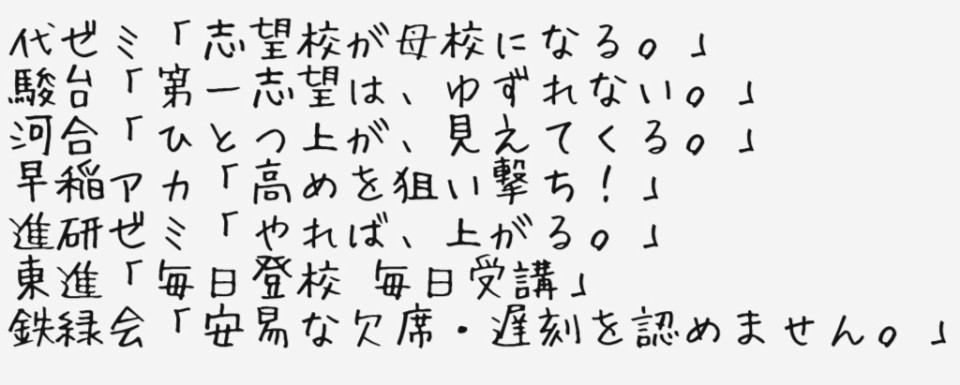 代ゼミ「志望校が母校になる。」
駿台「第一志望は、ゆずれない。」
河合「ひとつ上が、見えてくる。」
早稲アカ「高めを狙い撃ち!」
進研ゼミ「やれば、上がる。」
東進「毎日登校 毎日受講」
鉄緑会「安易な欠席・遅刻を認めません。」